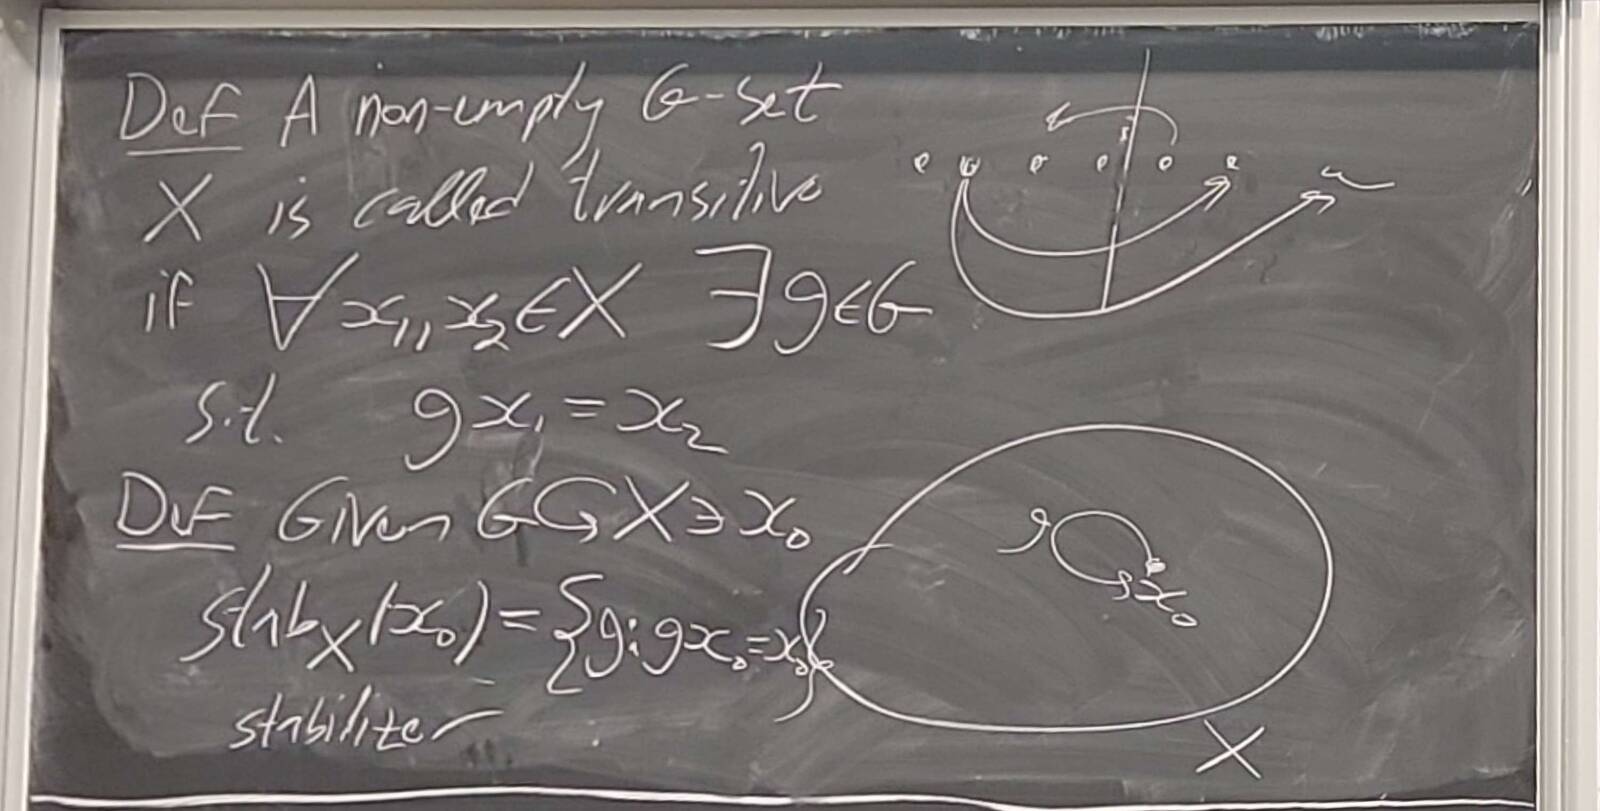 Def A non-empty G-set
X is called transitive
if ∀ x₁, x₂ ∈ X ∃ g ∈ G
s.t. g x₁ = x₂
Def Given G ↻ X ∋ x₀
stab_X (x₀) = {g : g x₀ = x₀}
stabilizer
g
x₀
X